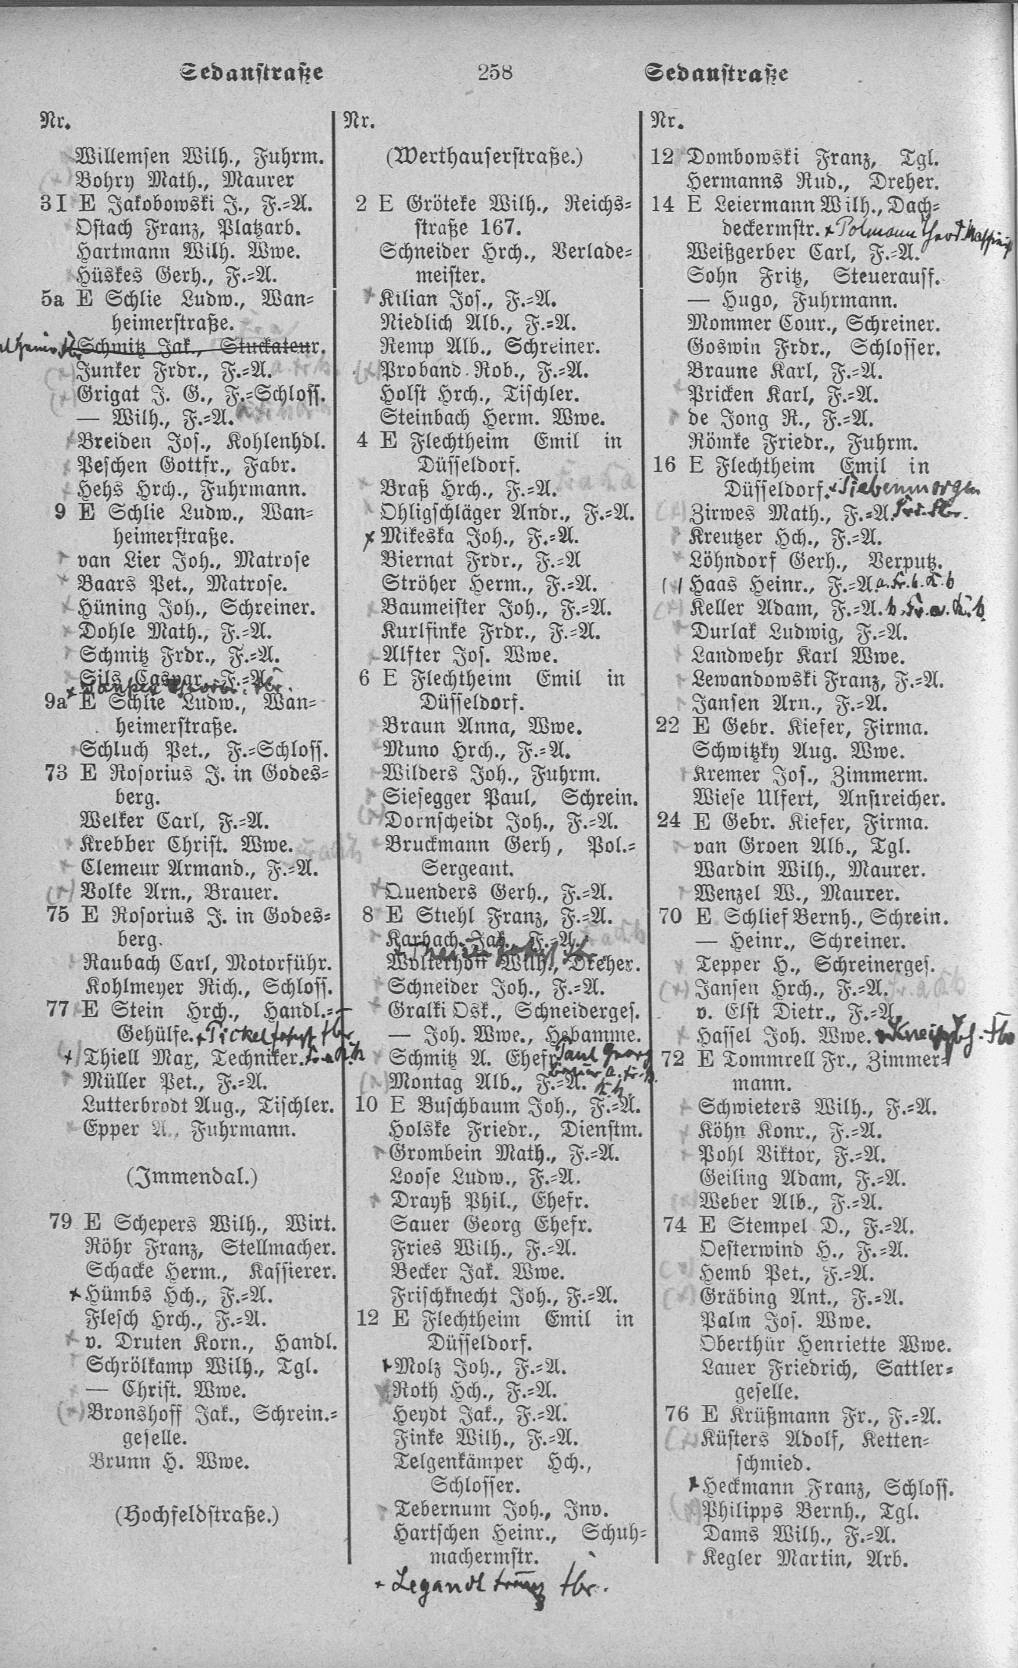 Sedanstraße 258 Sedanstraße
Nr.
Willemsen Wilh., Fuhrm.
Bohry Math., Maurer
3I E Jakobowski J., F.=A.
Ostach Franz, Platzarb.
Hartmann Wilh. Wwe.
Hüskes Gerh., F.=A.
5a E Schlie Ludw., Wan=
heimerstraße.
Schmitz Jak., Stuckateur.
Junker Frdr., F.=A.
Grigat J. G., F.=Schloss.
— Wilh., F.=A.
Breiden Jos., Kohlenhdl.
Peschen Gottfr., Fabr.
Hehs Hrch., Fuhrmann.
9 E Schlie Ludw., Wan=
heimerstraße.
van Lier Joh., Matrose
Baars Pet., Matrose.
Hüning Joh., Schreiner.
Dohle Math., F.=A.
Schmitz Frdr., F.=A.
Gils Caspar, F.=A.
9a E Schlie Ludw., Wan=
heimerstraße.
Schluch Pet., F.=Schloss.
73 E Rosorius J. in Godes=
berg.
Welker Carl, F.=A.
Krebber Christ. Wwe.
Clemeur Armand., F.=A.
Volke Arn., Brauer.
75 E Rosorius J. in Godes=
berg.
Raubach Carl, Motorführ.
Kohlmeyer Rich., Schloss.
77 E Stein Hrch., Handl.=
Gehülfe.
Thiell Max, Techniker.
Müller Pet., F.=A.
Lutterbrodt Aug., Tischler.
Epper A., Fuhrmann.
(Immendal.)
79 E Schepers Wilh., Wirt.
Röhr Franz, Stellmacher.
Schacke Herm., Kassierer.
Hümbs Hch., F.=A.
Flesch Hrch., F.=A.
v. Druten Korn., Handl.
Schrölkamp Wilh., Tgl.
— Christ. Wwe.
Bronshoff Jak., Schrein.=
geselle.
Brunn H. Wwe.
(Hochfeldstraße.)
Nr.
(Werthauserstraße.)
2 E Gröteke Wilh., Reichs=
straße 167.
Schneider Hrch., Verlade=
meister.
Kilian Jos., F.=A.
Niedlich Alb., F.=A.
Remp Alb., Schreiner.
Proband Rob., F.=A.
Holst Hrch., Tischler.
Steinbach Herm. Wwe.
4 E Flechtheim Emil in
Düsseldorf.
Braß Hrch., F.=A.
Ohligschläger Andr., F.=A.
Mikeska Joh., F.=A.
Biernat Frdr., F.=A
Ströher Herm., F.=A.
Baumeister Joh., F.=A.
Kurlfinke Frdr., F.=A.
Alfter Jos. Wwe.
6 E Flechtheim Emil in
Düsseldorf.
Braun Anna, Wwe.
Muno Hrch., F.=A.
Wilders Joh., Fuhrm.
Siesegger Paul, Schrein.
Dornscheidt Joh., F.=A.
Bruckmann Gerh, Pol.=
Sergeant.
Quenders Gerh., F.=A.
8 E Stiehl Franz, F.=A.
Karbach Jak., F.=A.
Wolterhoff Wilh., Dreher.
Schneider Joh., F.=A.
Gralki Osk., Schneiderges.
— Joh. Wwe., Hebamme.
Schmitz A. Ehefr.
Montag Alb., F.=A.
10 E Buschbaum Joh., F.=A.
Holske Friedr., Dienstm.
Grombein Math., F.=A.
Loose Ludw., F.=A.
Drayß Phil., Ehefr.
Sauer Georg Ehefr.
Fries Wilh., F.=A.
Becker Jak. Wwe.
Frischknecht Joh., F.=A.
12 E Flechtheim Emil in
Düsseldorf.
Molz Joh., F.=A.
Roth Hch., F.=A.
Heydt Jak., F.=A.
Finke Wilh., F.=A.
Telgenkämper Hch.,
Schlosser.
Tebernum Joh., Inv.
Hartschen Heinr., Schuh=
machermstr.
Nr.
12 Dombowski Franz, Tgl.
Hermanns Rud., Dreher.
14 E Leiermann Wilh., Dach=
deckermstr. Polmann
Weißgerber Carl, F.=A.
Sohn Fritz, Steuerauff.
— Hugo, Fuhrmann.
Mommer Cour., Schreiner.
Goswin Frdr., Schlosser.
Braune Karl, F.=A.
Pricken Karl, F.=A.
de Jong R., F.=A.
Römke Friedr., Fuhrm.
16 E Flechtheim Emil in
Düsseldorf. Siebenmorgen
Zirwes Math., F.=A.
Kreutzer Hch., F.=A.
Löhndorf Gerh., Verputz.
Haas Heinr., F.=A.
Keller Adam, F.=A.
Durlak Ludwig, F.=A.
Landwehr Karl Wwe.
Lewandowski Franz, F.=A.
Jansen Arn., F.=A.
22 E Gebr. Kiefer, Firma.
Schwitzky Aug. Wwe.
Kremer Jos., Zimmerm.
Wiese Ulfert, Anstreicher.
24 E Gebr. Kiefer, Firma.
van Groen Alb., Tgl.
Wardin Wilh., Maurer.
Wenzel W., Maurer.
70 E Schlief Bernh., Schrein.
— Heinr., Schreiner.
Tepper H., Schreinerges.
Jansen Hrch., F.=A.
v. Elst Dietr., F.=A.
Hassel Joh. Wwe.
72 E Tommrell Fr., Zimmer=
mann.
Schwieters Wilh., F.=A.
Köhn Konr., F.=A.
Pohl Viktor, F.=A.
Geiling Adam, F.=A.
Weber Alb., F.=A.
74 E Stempel D., F.=A.
Oesterwind H., F.=A.
Hemb Pet., F.=A.
Gräbing Ant., F.=A.
Palm Jos. Wwe.
Oberthür Henriette Wwe.
Lauer Friedrich, Sattler=
geselle.
76 E Krüßmann Fr., F.=A.
Küsters Adolf, Ketten=
schmied.
Heckmann Franz, Schloss.
Philipps Bernh., Tgl.
Dams Wilh., F.=A.
Kegler Martin, Arb.